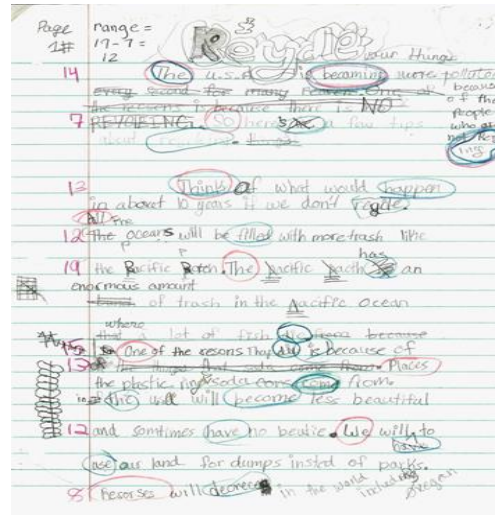 Page range =
1# 19-7=
12
Recycle
your things
14 The U.S.A is becoming more polluted
every second for many reasons One of because
the reasons is because there is NO of the
people
7 RECYCLEING. SO here's a few tips who are
about things not
13 Think of what would happen
in about 10 years if we don't
All the
12 The oceans will be filled with more trash like
19 the Pacific Patch. The Pacific Pacth has an
enormous amount
of trash in the Pacific Ocean
where
that a lot of fish because
15 One of the resons They die is because of
13 the things that soda come from. Places
the plastic rings soda cans come from.
in This will become less beautiful
12 and somtimes have no beutie. We will to
have
use our land for dumps insted of parks.
8 Resorses will decrece in the world including Oregon